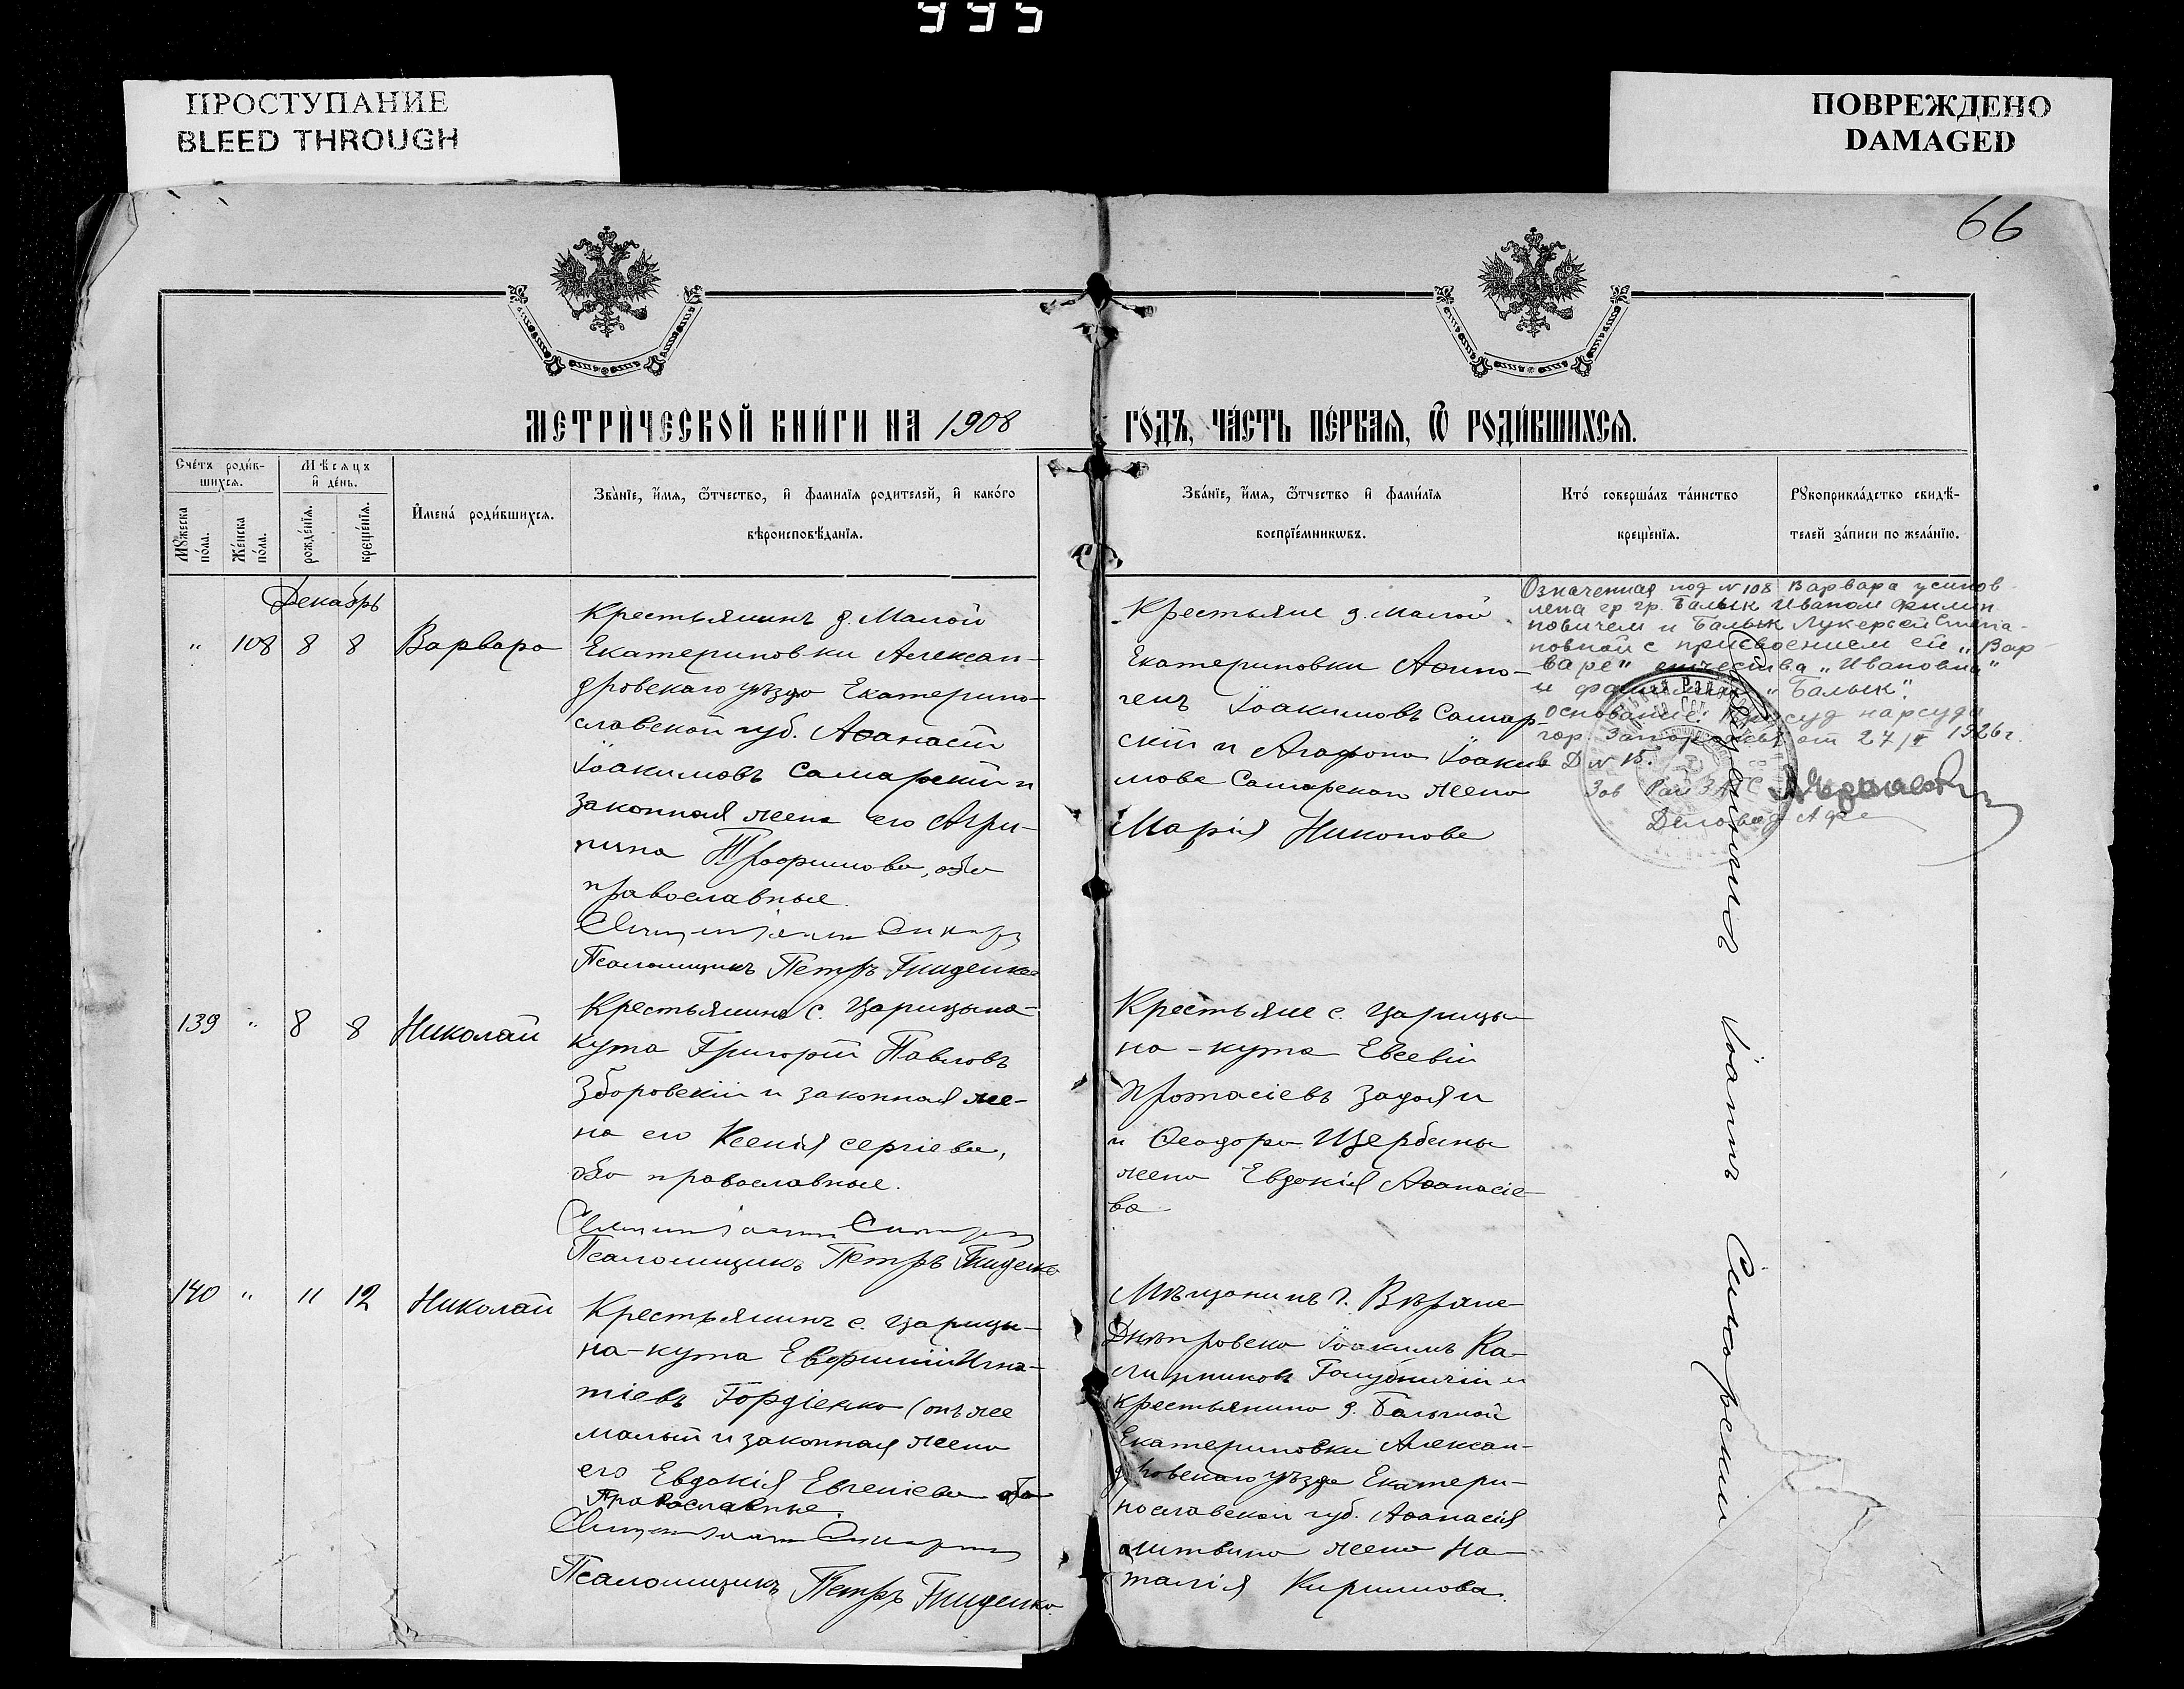 995
ПРОСТУПАНИЕ
BLEED THROUGH
ПОВРЕЖДЕНО
DAMAGED
66
МЕТРИ́ЧЕСКОЙ КНИ́ГИ НА 1908
ГО́ДЪ, ЧА́СТЬ ПЕ́РВАѦ, Ѿ РОДИ́ВШИХСѦ.
Сче́тъ роди́вшихсѧ.
Мѣ́сяцъ и҆ де́нь.
Мꙋ́жеска по́ла.
Же́нска по́ла.
рожде́нїѧ.
креще́нїѧ.
И҆мена̀ роди́вшихсѧ.
Зва́нїе, и҆́мѧ, ѻ҆́тчество, и҆ фами́лїѧ роди́телей, и҆ како́го
вѣроисповѣ́данїѧ.
Зва́нїе, и҆́мѧ, ѻ҆́тчество и҆ фами́лїѧ
воспрїе́мникѡвъ.
Кто̀ соверша́лъ та́инство
креще́нїѧ.
Рꙋкоприкла́дство свидѣ́-
телей за́писи по жела́нїю.
Декабрь
" 108 8 8 Варвара
Крестьянинъ д. Малой
Екатериновки Алексан-
дровскаго уѣзда Екатерино-
славской губ. Аѳанасій
Іоакимовъ Самарскій и
законная жена его Агри-
пина Трофимова, оба
православные.
Псаломщикъ Петръ Гниденко
Крестьяне д. Малой
Екатериновки Аѳино-
генъ Іоакимовъ Самар-
скій и Агафона Іоаки-
мова Самарскаго жена
Марія Никонова
Означенная под N 108 Варвара усынов-
лена гр. гр. Балык Иваном Филип-
повичем и Балык Лукерьей Степа-
новной с присвоением ей "Вар-
варе" отчества "Ивановна"
и фамилии "Балык".
Основание: нарсуда
гор. Запорожья от 27/ 1926 г.
Д N 15.
Зав Рай ЗАГС
Деловод
Священникъ Іоаннъ Сикорскій
139 " 8 8 Николай
Крестьянинъ с. Царицына-
кута Григорій Павловъ
Зборовскій и законная же-
на его Ксенія Сергіева,
оба православные.
Псаломщикъ Петръ Гниденко
Крестьяне с. Царицы-
на-кута Евсевій
Протасіевъ Задоя и
и Ѳеодора Щербины
жена Евдокія Аѳанасіе-
ва
140 " 11 12 Николай
Крестьянинъ с. Царицы-
на-кута Евфимій Игна-
тіевъ Гордіенко (онъ же
Малый и законная жена
его Евдокія Евгеніева оба
Православные.
Псаломщикъ Петръ Гниденко.
Мѣщанинъ г. Верхне-
Днѣпровска Іоакимъ Ка-
линниковъ и
крестьянина д. Большой
Екатериновки Алексан-
дровскаго уѣзда Екатери-
нославской губ. Аѳанасія
Литвина жена На-
талія Кириллова.